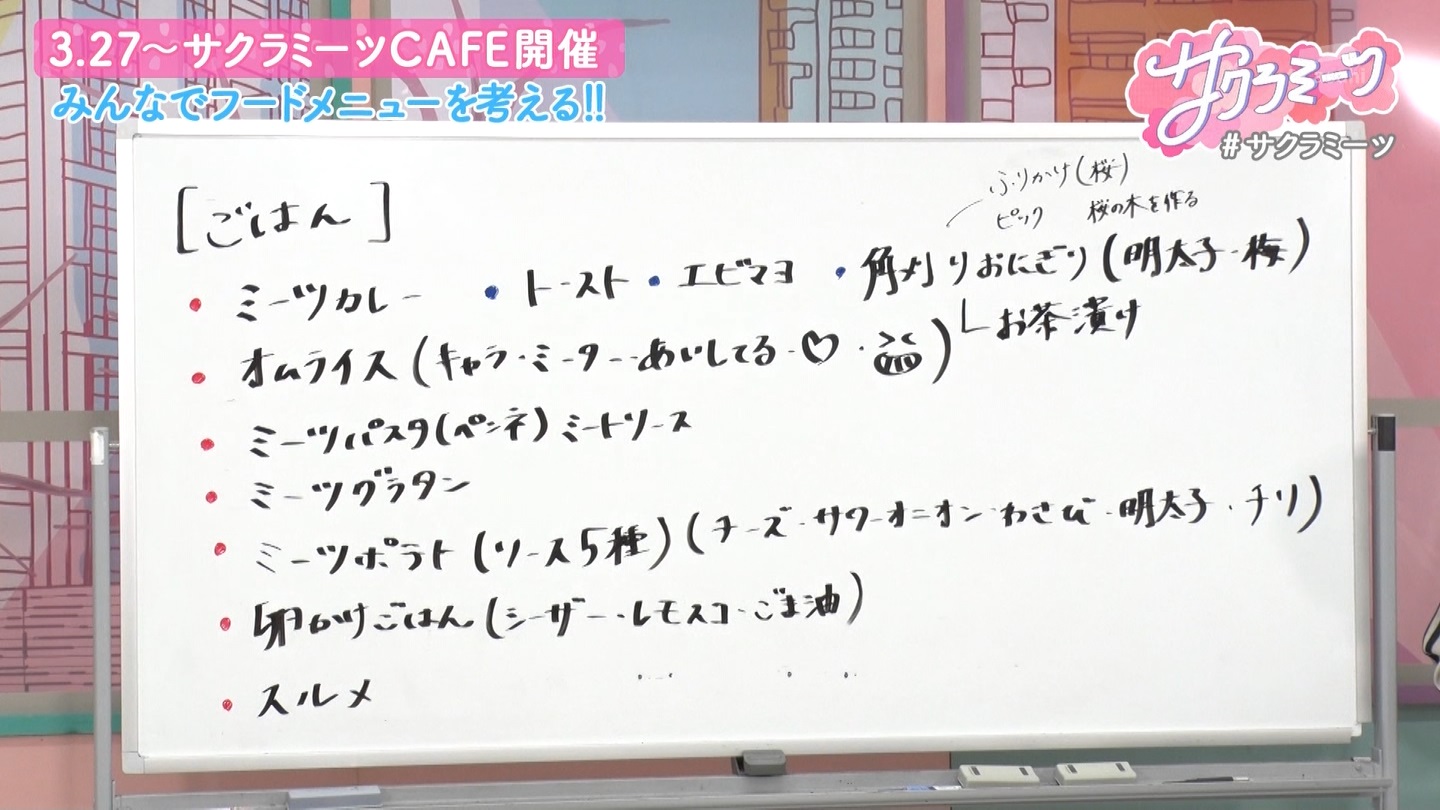 3.27～サクラミーツCAFE開催
みんなでフードメニューを考える!!
サクラミーツ
#サクラミーツ
ふりかけ(桜)
ピック 桜の木を作る
[ごはん]
• ミーツカレー • トースト • エビマヨ • 角刈りおにぎり(明太子・梅)
└お茶漬け
• オムライス(キャラ・ミーター・あいしてる・♡・)
• ミーツパスタ(ペンネ)ミートソース
• ミーツグラタン
• ミーツポテト(ソース5種)(チーズ・サワーオニオン・わさび・明太子・チリ)
• 卵かけごはん(シーザー・レモスコ・ごま油)
• スルメ